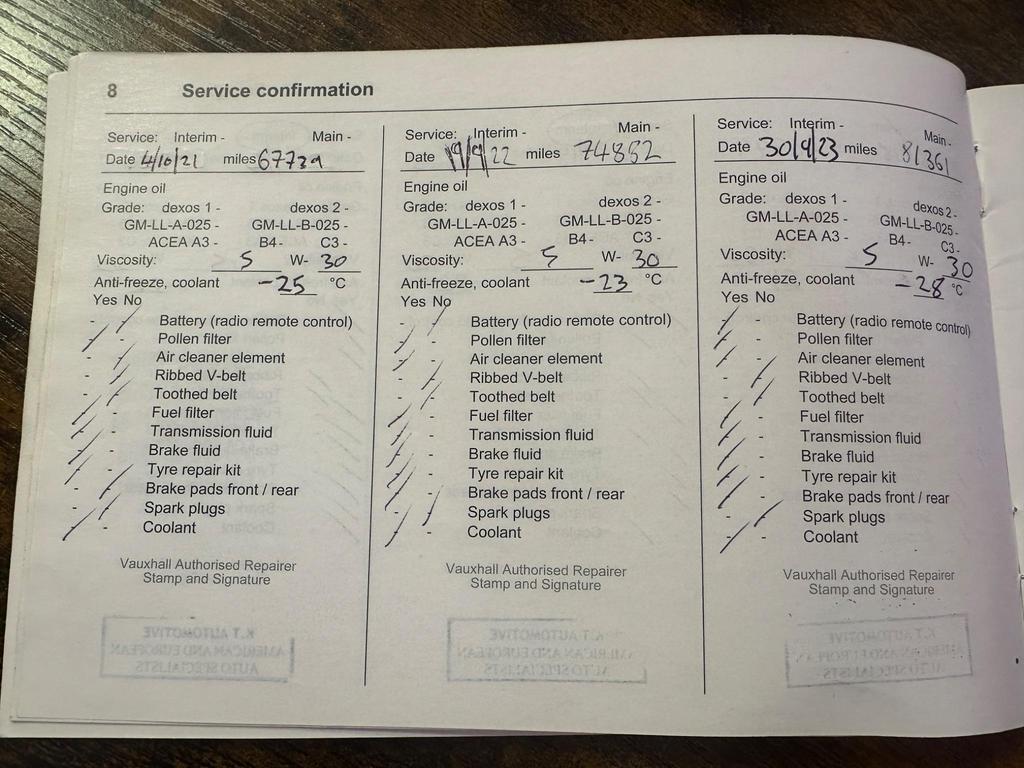 8 Service confirmation
Service: Interim - Main -
Date 4/10/21 miles 67739
Engine oil
Grade: dexos 1 - dexos 2 -
GM-LL-A-025 - GM-LL-B-025-
ACEA A3 - B4- C3 -
Viscosity: 5 W- 30
Anti-freeze, coolant -25 °C
Yes No
Battery (radio remote control)
Pollen filter
Air cleaner element
Ribbed V-belt
Toothed belt
Fuel filter
Transmission fluid
Brake fluid
Tyre repair kit
Brake pads front / rear
Spark plugs
Coolant
Vauxhall Authorised Repairer
Stamp and Signature
K.T AUTOMOTIVE
AMERICAN AND EUROPEAN
AUTO SPECIALISTS
Service: Interim - Main -
Date 19/9/22 miles 74882
Engine oil
Grade: dexos 1 - dexos 2 -
GM-LL-A-025 - GM-LL-B-025-
ACEA A3 - B4- C3 -
Viscosity: 5 W- 30
Anti-freeze, coolant -23 °C
Yes No
Battery (radio remote control)
Pollen filter
Air cleaner element
Ribbed V-belt
Toothed belt
Fuel filter
Transmission fluid
Brake fluid
Tyre repair kit
Brake pads front / rear
Spark plugs
Coolant
Vauxhall Authorised Repairer
Stamp and Signature
K.T AUTOMOTIVE
AMERICAN AND EUROPEAN
AUTO SPECIALISTS
Service: Interim - Main -
Date 30/9/23 miles 81361
Engine oil
Grade: dexos 1 - dexos 2 -
GM-LL-A-025 - GM-LL-B-025-
ACEA A3 - B4- C3 -
Viscosity: 5 W- 30
Anti-freeze, coolant -28 °C
Yes No
Battery (radio remote control)
Pollen filter
Air cleaner element
Ribbed V-belt
Toothed belt
Fuel filter
Transmission fluid
Brake fluid
Tyre repair kit
Brake pads front / rear
Spark plugs
Coolant
Vauxhall Authorised Repairer
Stamp and Signature
K.T AUTOMOTIVE
AMERICAN AND EUROPEAN
AUTO SPECIALISTS